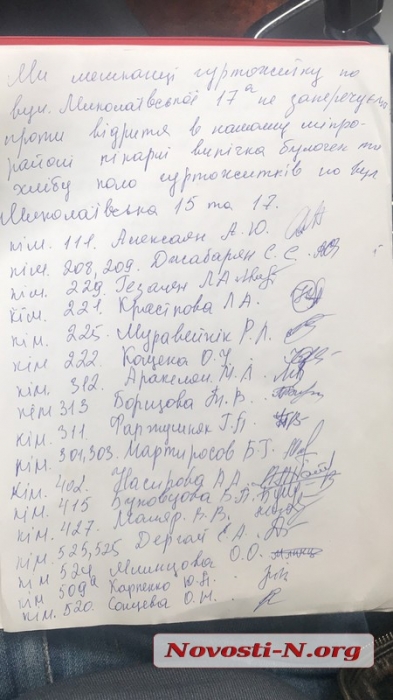 Ми мешканці гуртожитку по
вул. Миколаївської 17а не заперечуєм
проти відриття в нашому мікро-
районі пікарлі випічка булочек та
хлібу коло гуртожитків по вул
Миколаївська 15 та 17.
кім. 111. Алексаян А. Ю.
кім. 208, 209. Джабарян С. С.
кім. 229. Гезалян Л А
кім. 221. Красікова Л А.
кім. 225. Муравейнік Р. Л.
кім 222. Кащена О. Ч
кім. 312. Аракелян М. Л
кем 313 Борщова Т. В.
кім. 311. Фаржушняк Г. П.
кім. 301, 303. Мартиросов Б. Г.
кім. 402. Насирова А. А.
кім. 415 Буковцова Б. П.
кім. 427. Маляр. В. В.
кім. 525, 525 Дергай Е. А.
кім 524 Минцова О. О.
кім 509а Карпенко Ю. А.
кім. 520. Сащева О. Н.
Novosti-N.org